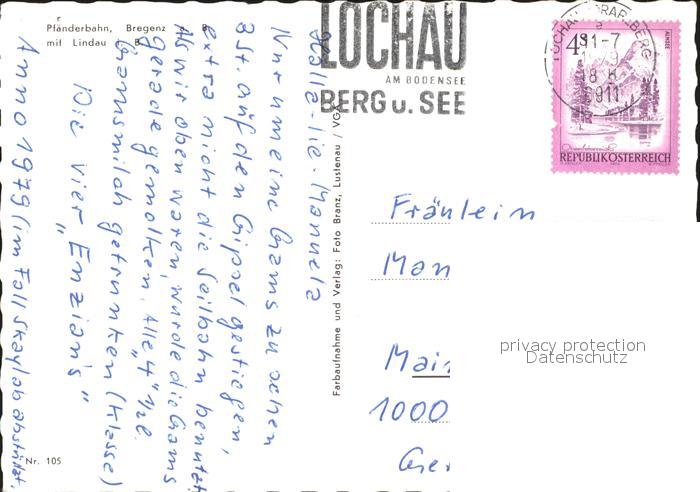 Pfänderbahn, Bregenz B
mit Lindau B
Hallo - lie. Manuela
Nur um eine Gams zu sehen
3 St. auf den Gipfel gestiegen,
extra nicht die Seilbahn benutzt
Als wir oben waren, wurde die Gams
gerade gemolken. Alle „4" 1/2 l.
Gamsmilch getrunken (Klasse)
Die vier „Enzian's"
Anno 1979 (im Fall Skaylab abstürzt.
Nr. 105
Farbaufnahme und Verlag: Foto Branz, Lustenau / VGA
LOCHAU
AM BODENSEE
BERG u. SEE
LOCHAU VORARLBERG
6911
4 S
ALMSEE
Oberösterreich
REPUBLIK ÖSTERREICH
Fräulein
Man
Main
1000
Ger
privacy protection
Datenschutz